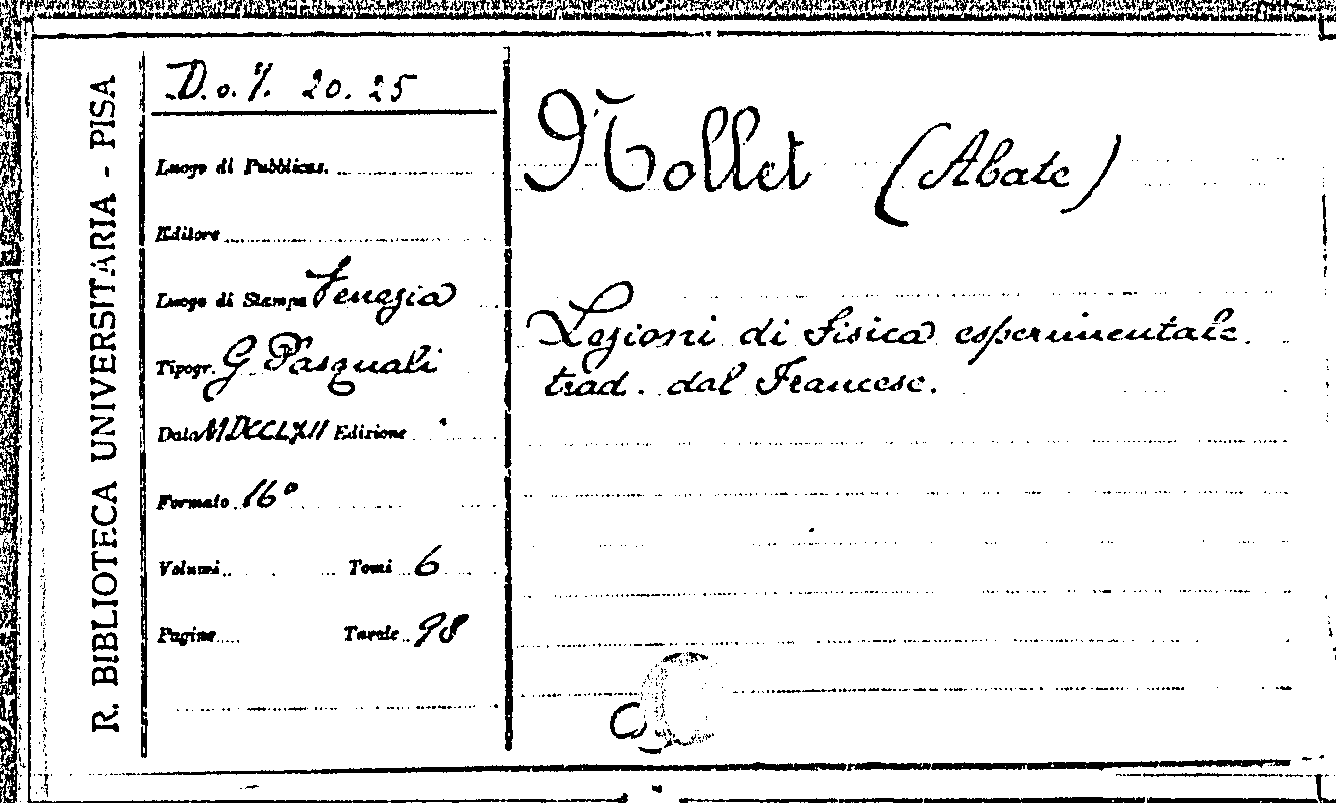 R. BIBLIOTECA UNIVERSITARIA - PISA
D. o. 7. 20. 25
Luogo di Pubblicaz.
Editore
Luogo di Stampa Venezia
Tipogr. G Pasquali
Data MDCCLXII Edizione
Formato 16°
Volumi Tomi 6
Pagine Tavole 98
Nollet (Abate)
Lezioni di fisica esperimentale
trad. dal Francese.